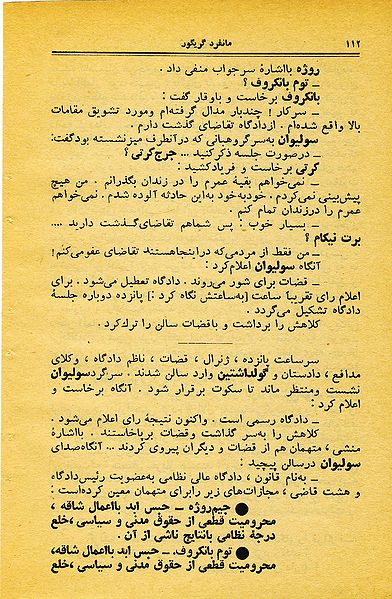 ۱۱۲ مانفرد گریگور
روژه بااشارهٔ سرجواب منفی داد .
ــ توم بانکروف ؟
بانکروف برخاست و باوقار گفت :
ــ سرکار ! چندبار مدال گرفته‌ام ومورد تشویق مقامات
بالا واقع شده‌ام . ازدادگاه تقاضای گذشت دارم .
سولیوان به‌سرگروهبانی که درآنطرف میزنشسته بودگفت:
ــ درصورت جلسه ذکرکنید ... جرج‌گرتی ؟
گرتی برخاست و فریادکشید :
ــ نمی‌خواهم بقیهٔ عمرم را در زندان بگذرانم . من هیچ
پیش‌بینی نمی‌کردم . خودبه‌خود به‌این حادثه آلوده شدم . نمی‌خواهم
عمرم را درزندان تمام کنم .
ــ بسیار خوب : پس شماهم تقاضای‌گذشت دارید ....
برت نیکام ؟
ــ من فقط از مردمی‌که دراینجاهستند تقاضای عفومی‌کنم !
آنگاه سولیوان اعلام‌کرد :
ــ قضات برای شور می‌روند . دادگاه تعطیل می‌شود . برای
اعلام رای تقریباً ساعت [به‌ساعتش نگاه کرد :] پانزده دوباره جلسهٔ
دادگاه تشکیل می‌گردد .
کلاهش را برداشت و باقضات سالن را ترك‌کرد .
سرساعت پانزده ، ژنرال ، قضات ، ناظم دادگاه ، وکلای
مدافع ، دادستان و گولداشتین وارد سالن شدند . سرگردسولیوان
نشست ومنتظر ماند تا سکوت برقرار شود . آنگاه برخاست و
اعلام کرد :
ــ دادگاه رسمی است . واکنون نتیجهٔ رای اعلام می‌شود .
کلاهش را به‌سر گذاشت وقضات برپاخاستند . بااشارهٔ
منشی ، متهمان هم از قضات و دیگران پیروی کردند ... آنگاه‌صدای
سولیوان درسالن پیچید :
ــ به‌نام قانون ، دادگاه عالی نظامی به‌عضویت رئیس‌دادگاه
و هشت قاضی ، مجازات‌های زیر رابرای متهمان معین کرده‌است :
● جیم‌روژه ــ حبس ابد بااعمال شاقه ،
محرومیت قطعی از حقوق مدنی و سیاسی ،خلع
درجهٔ نظامی بانتایج ناشی از آن .
● توم بانکروف. ــ حبس ابد بااعمال شاقه،
محرومیت قطعی از حقوق مدنی و سیاسی ،خلع